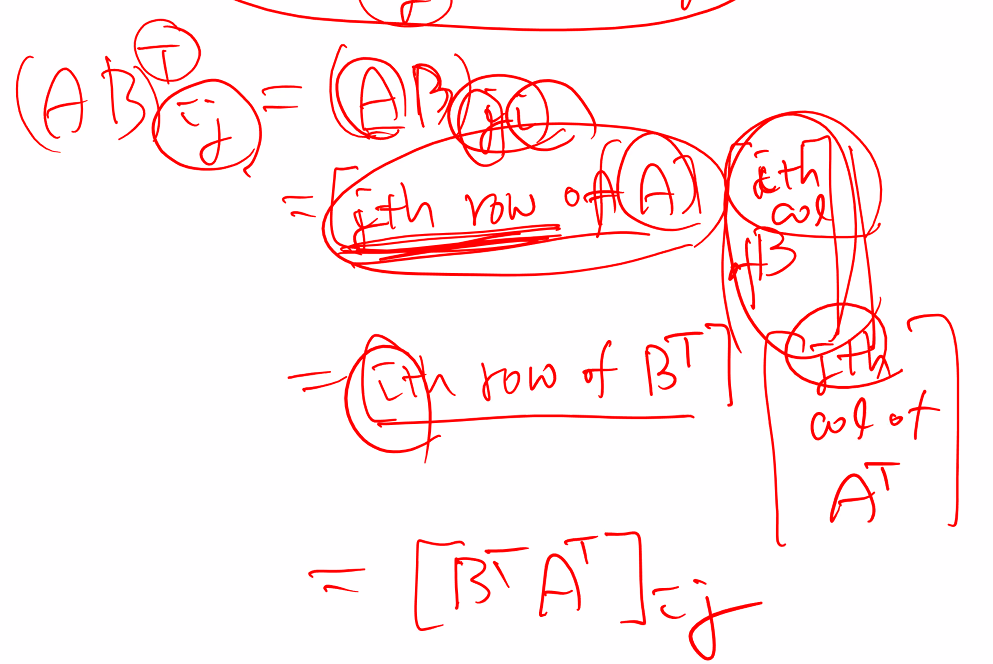 (AB)ᵀij = (AB)ji
= [jth row of A] [ith col of B]
= [ith row of Bᵀ] [jth col of Aᵀ]
= [BᵀAᵀ]ij